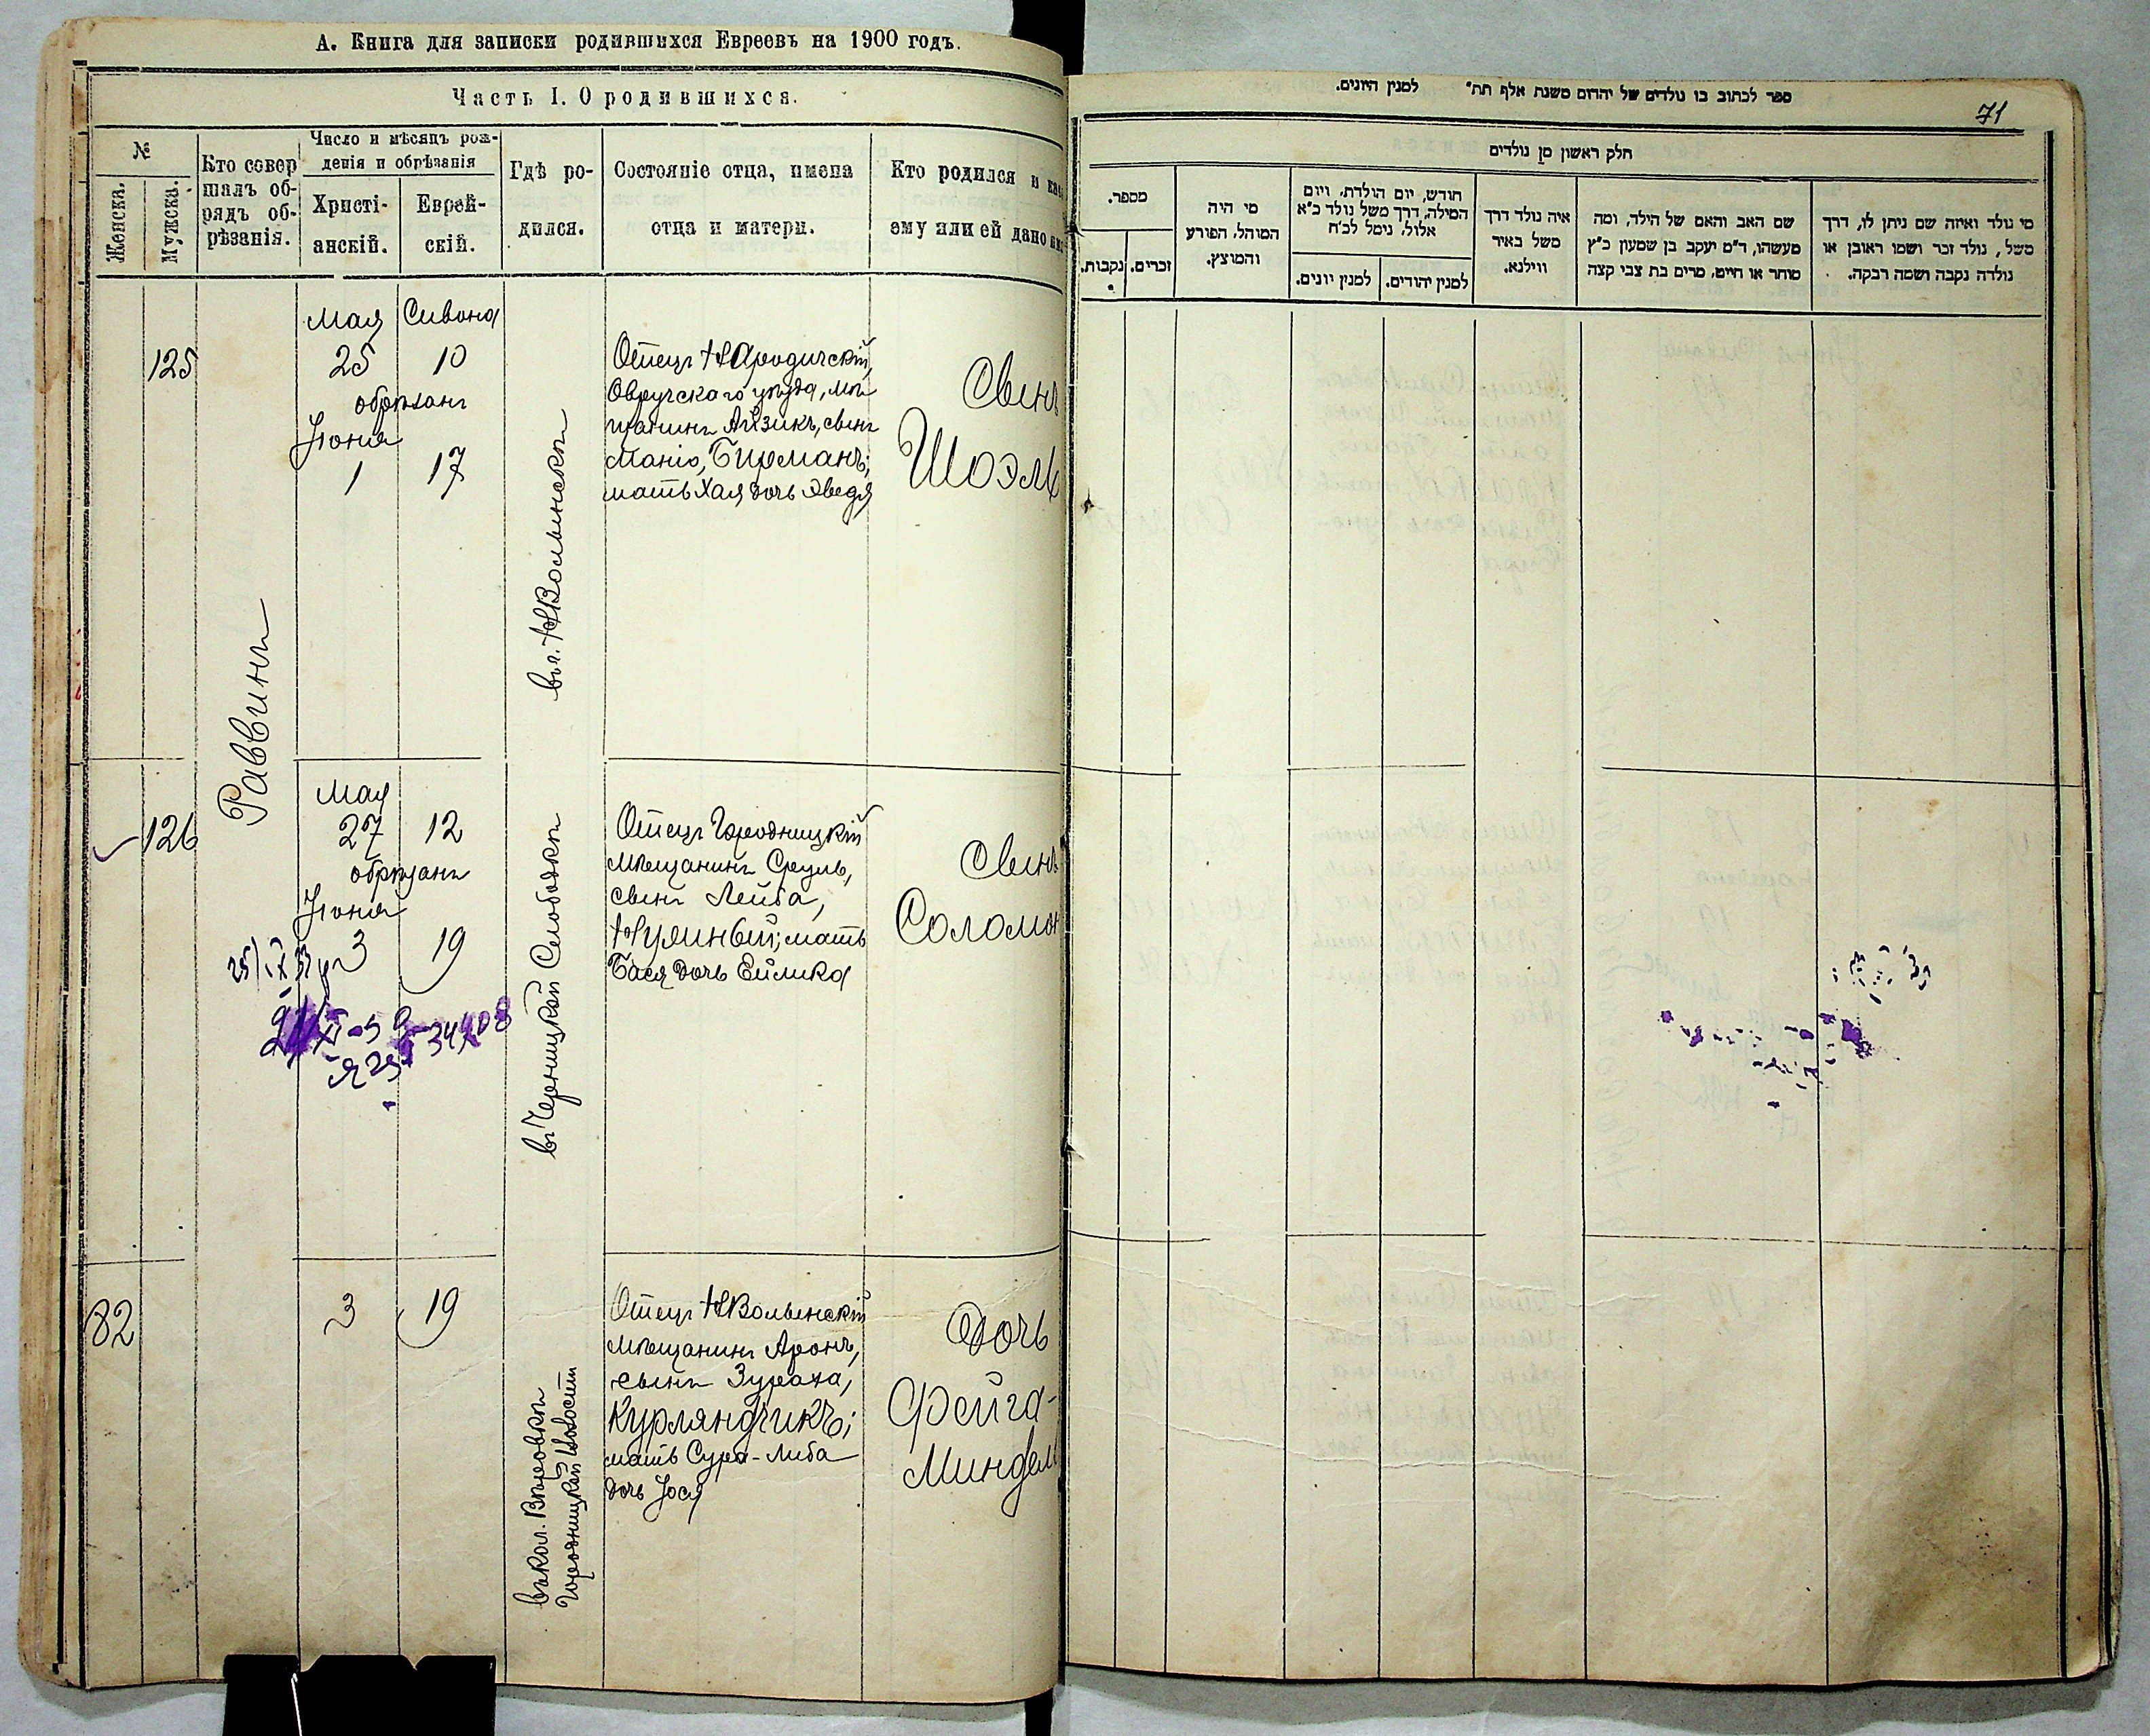 А. Книга для записки родившихся Евреевъ на 1900 годъ.
Часть I. О родившихся.
№
Женска.
Мужска.
Кто совер
шалъ об-
рядъ об-
рѣзанія.
Число и мѣсяцъ рож-
денія и обрѣзанія
Христі-
анскій.
Еврей-
скій.
Гдѣ ро-
дился.
Состояніе отца, имена
отца и матери.
Кто родился и как
ему или ей дано им
125
Раввинъ
Мая
25
обрѣзанъ
Іюня
1
Сивона
10
17
въ г. НВолынскѣ
Отецъ НАродичскій,
Овручскаго уѣзда, мѣ
щанинъ Айзикъ, сынъ
Манiо, Бирманъ;
мать Хая дочь Эведя
Сынъ
Шоэль
126
Мая
27
обрѣзанъ
Іюня
3
12
19
въ Черницкой Слободкѣ
Отецъ Городницкій
мѣщанинъ Сруль,
сынъ Лейба,
Нулинбой; мать
Бася дочь Ейлика
Сынъ
Соломон
82
3
19
въ кол. Вѣровкѣ
Городницкой волости
Отецъ НВолынскій
мѣщанинъ Аронъ,
сынъ Зураха,
Курляндчикъ;
мать Сура-Либа
дочь Іося
Дочь
Фейга-
Миндель
ספר לכתוב בו נולדים של יהדום משנת אלף תת״ למנין היונים.
71
חלק ראשון מן נולדים
מספר.
נקבות.
זכרים.
מי היה
המוהל, הפורע
והמוצץ.
חודש, יום הולדת, ויום
המילה, דרך משל נולד כ״א
אלול, נימל לכ״ח
למנין יונים.
למנין יהודים.
איה נולד דרך
משל באיר
ווילנא.
שם האב והאם של הילד, ומה
מעשהו, ד״מ יעקב בן שמעון כ״ץ
סוחר או חייט, מרים בת צבי קצה
מי נולד ואיזה שם ניתן לו, דרך
משל, נולד זכר ושמו ראובן או
נולדה נקבה ושמה רבקה.